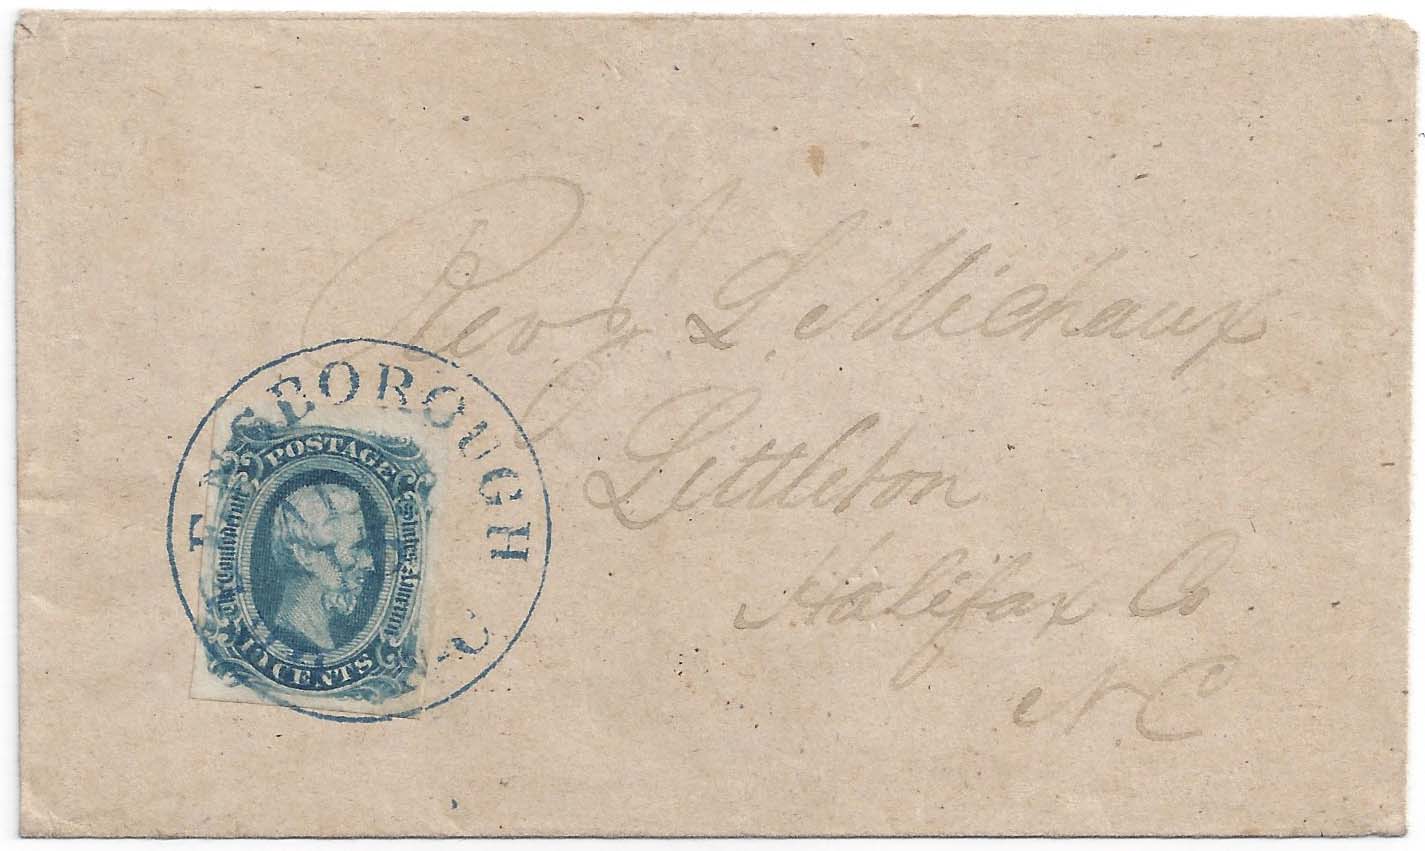 Rev. J. L. Michaux
Littleton
Halifax Co.
N C
ENSBOROUGH
C
POSTAGE
The Confederate
States of America
10 CENTS